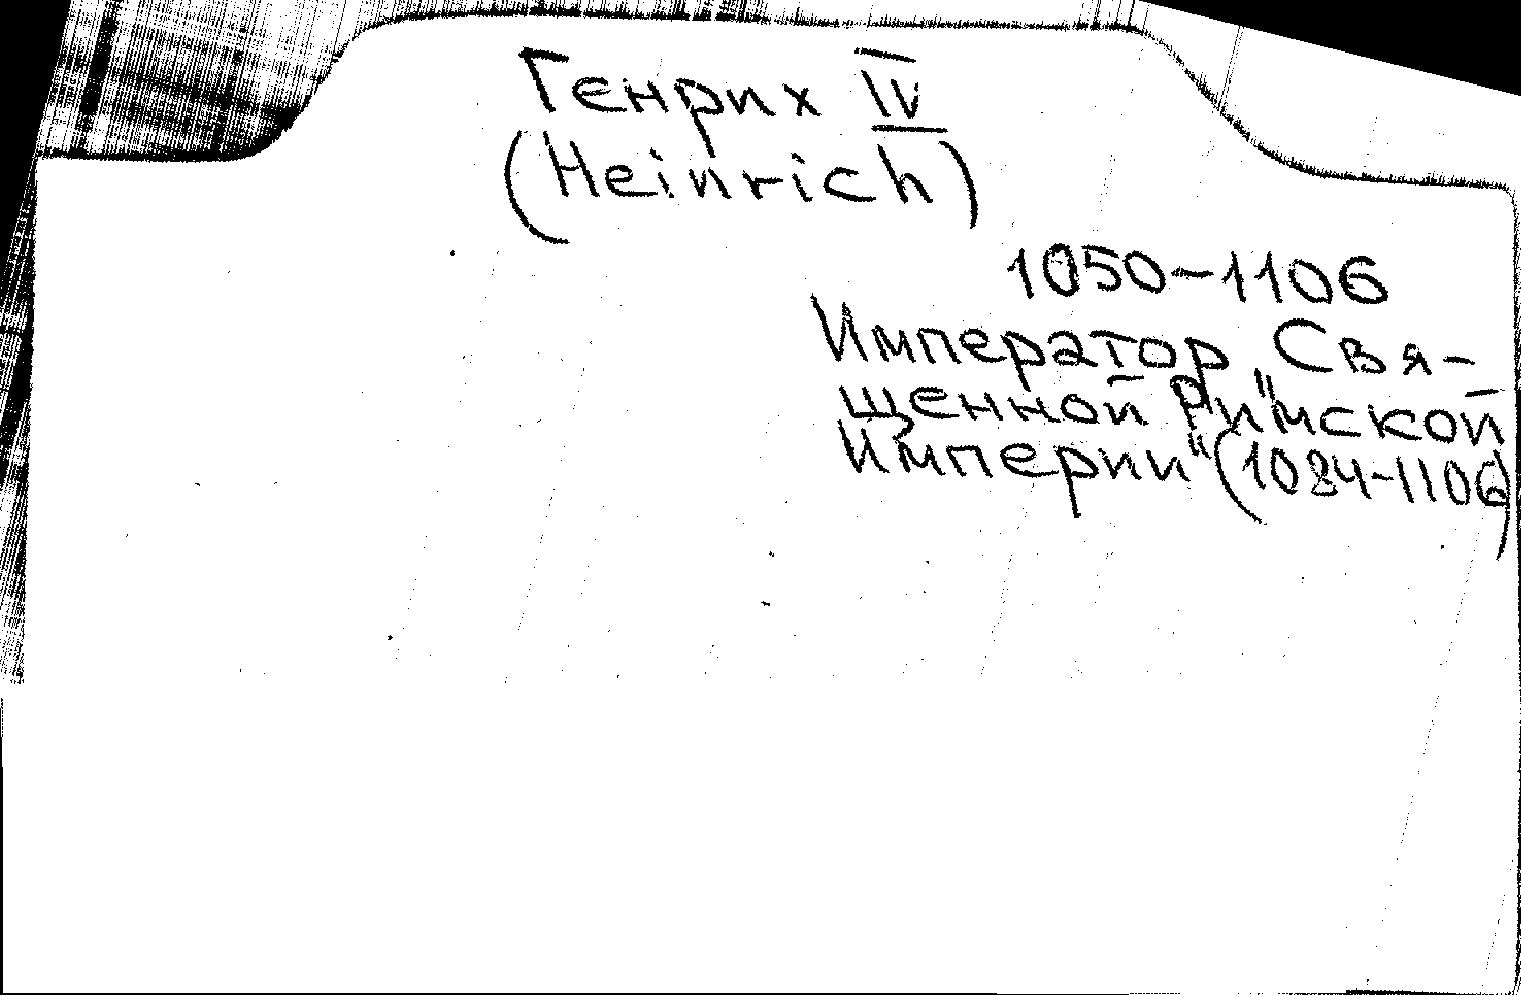 Генрих IV
(Heinrich)
1050-1106
Император „Свя-
щенной Римской
Империи" (1084-1106)